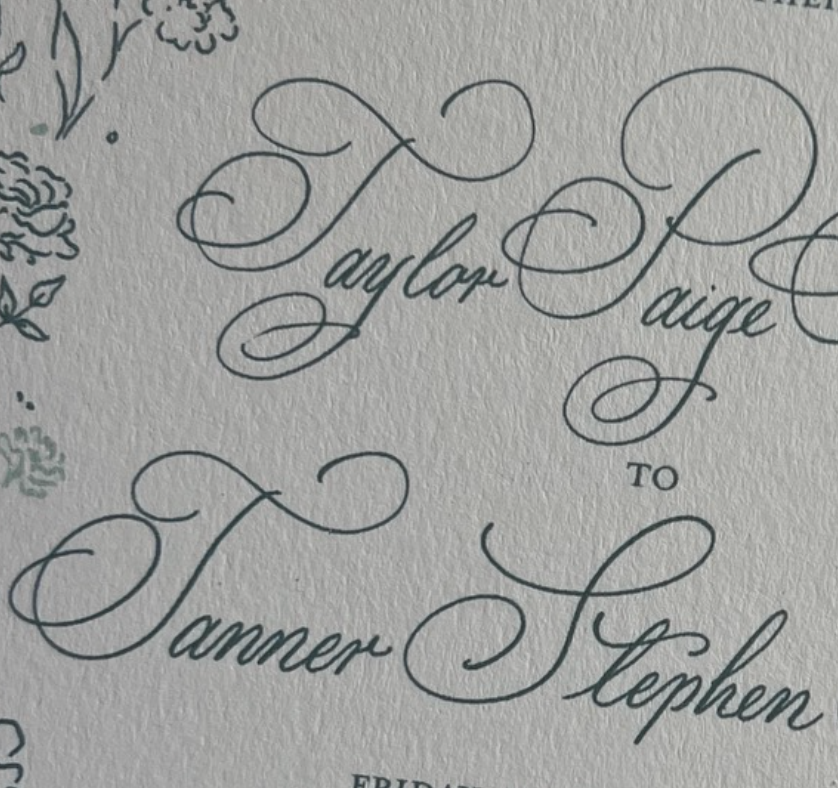 Taylor Paige
TO
Tanner Stephen